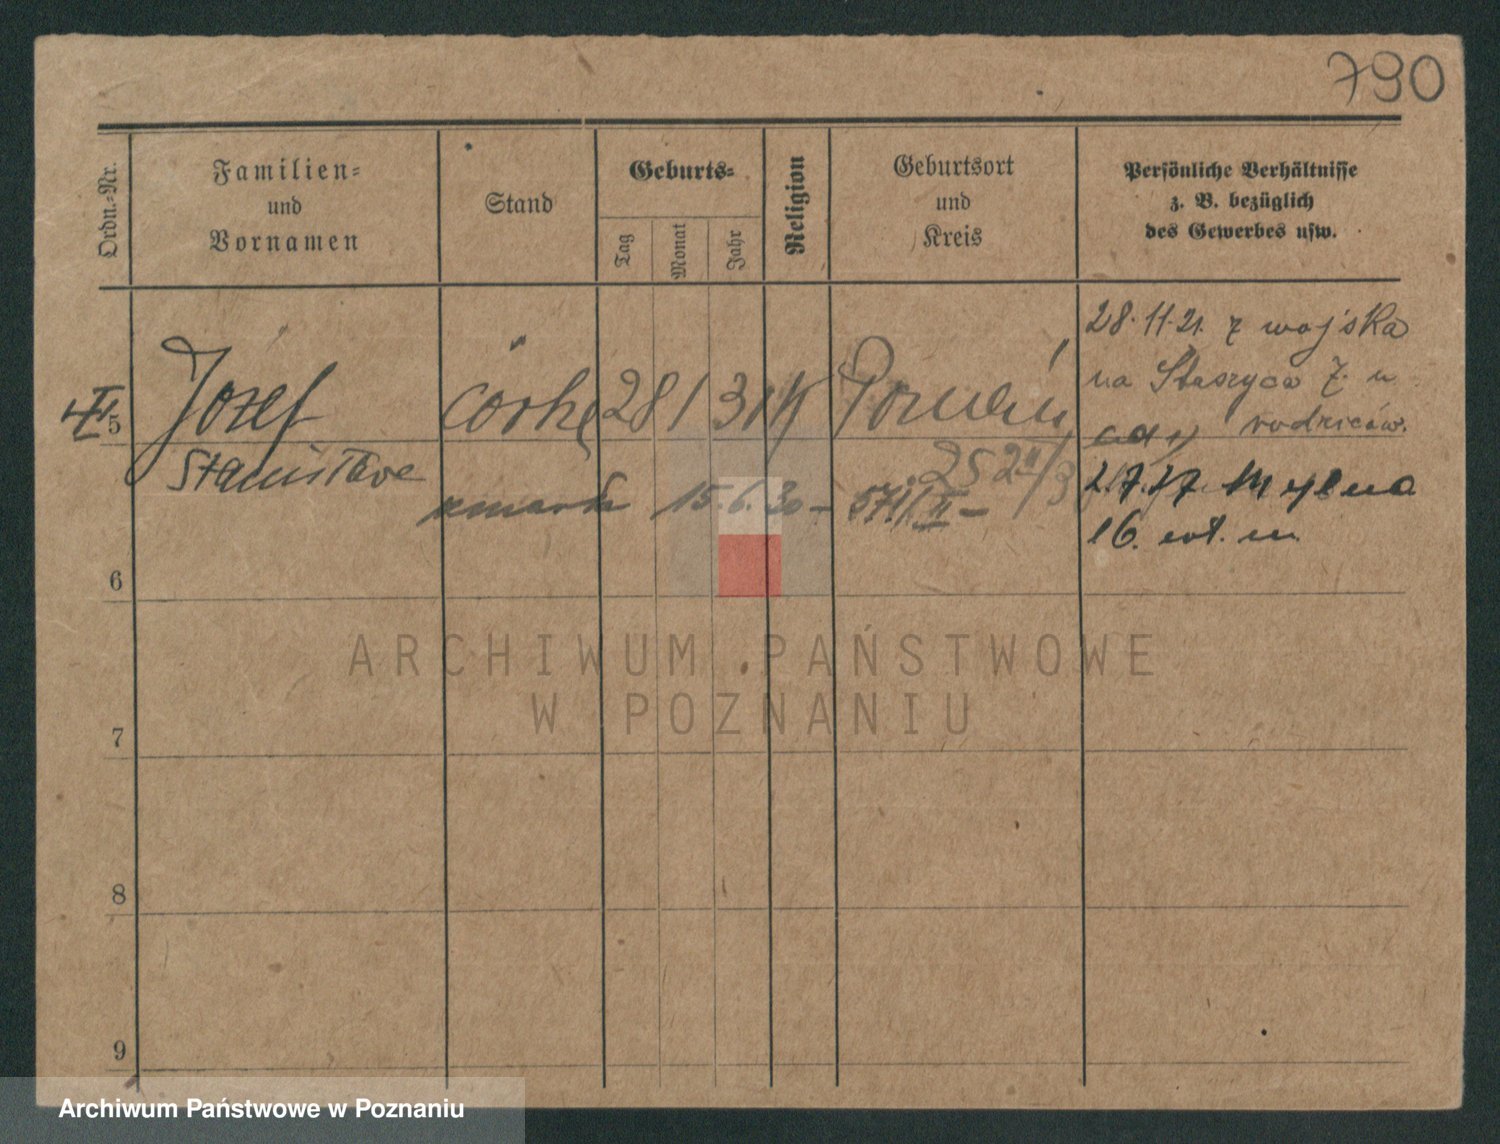 790
Ordn.-Nr.
Familien-
und
Vornamen
Stand
Geburts-
Tag
Monat
Jahr
Religion
Geburtsort
und
Kreis
Persönliche Verhältnisse
z. B. bezüglich
des Gewerbes usw.
28.11.21. z wojska
na Staszyca 7. u
rodziców.
5
Józef
córka
28 1 31
Poznań
Stanisława
252 II/3
2.7.37 Mylna
zmarła 15.6.30 - 571/II -
16. wł. m.
6
ARCHIWUM PAŃSTWOWE
W POZNANIU
7
8
9
Archiwum Państwowe w Poznaniu